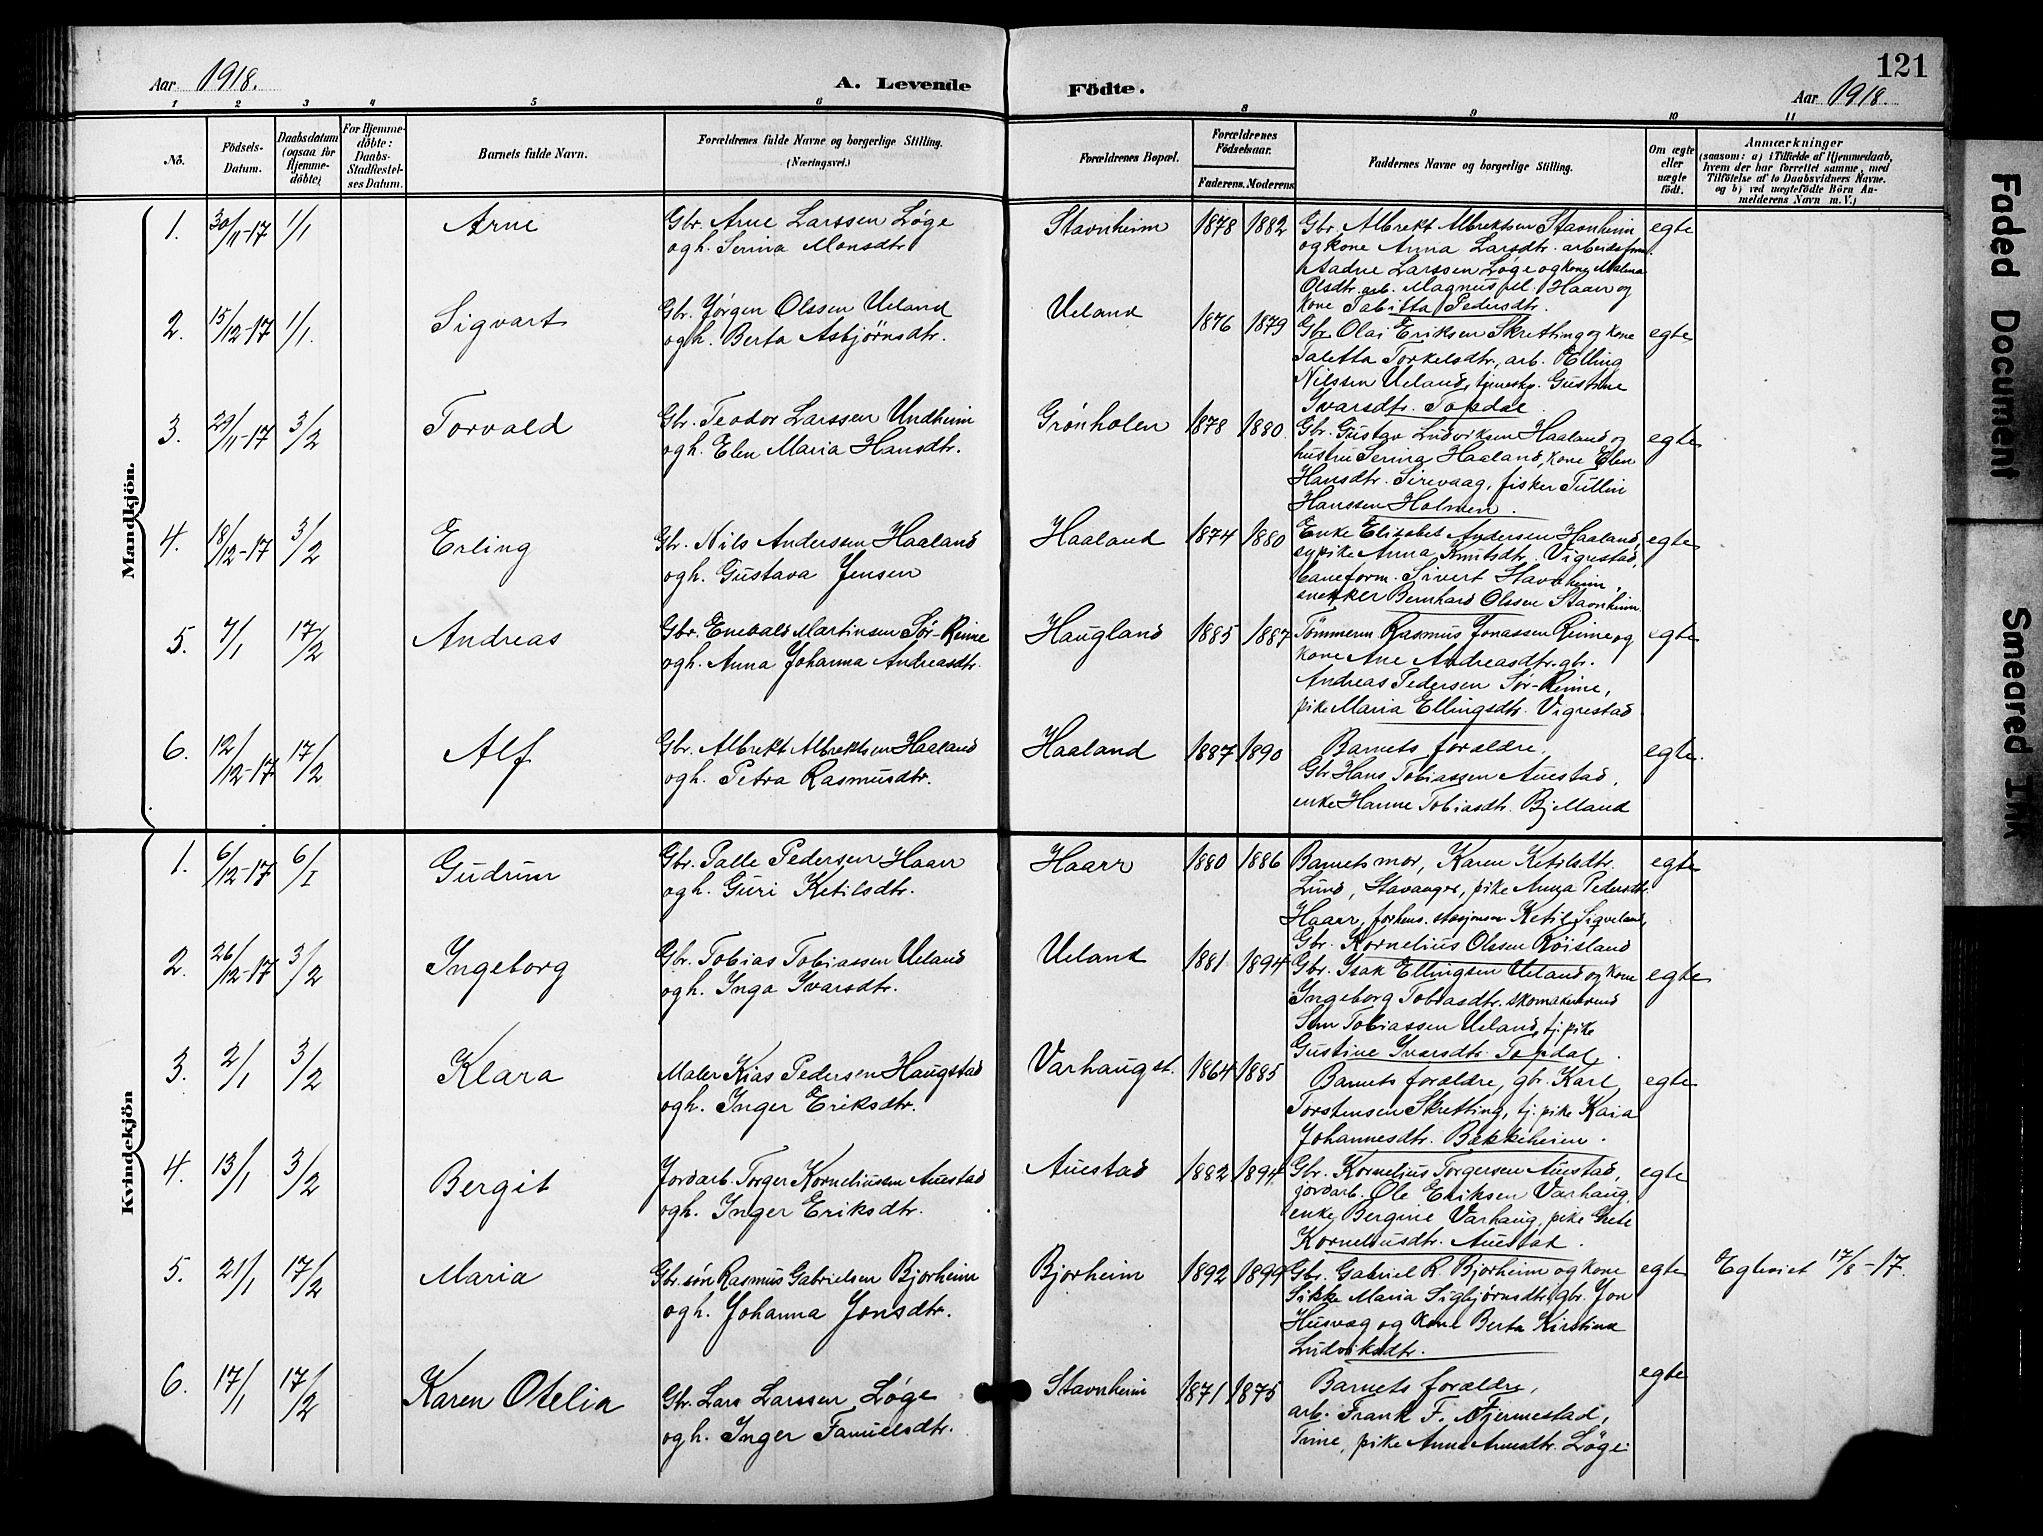 121
Aar 1918.
A. Levende Födte.
Aar 1918.
1 2 3 4 5 6 8 9 10 11
No.
Födsels-
Datum.
Daabsdatum
(ogsaa for
Hjemme-
döbte).
For Hjemme-
döbte:
Daabs-
Stadfæstel-
ses Datum.
Barnets fulde Navn.
Forældrenes fulde Navne og borgerlige Stilling.
(Næringsvei.)
Forældrenes Bopæl.
Forældrenes
Födselsaar.
Faderens. Moderens.
Faddernes Navne og borgerlige Stilling.
Om ægte
eller
uægte
födt.
Anmærkninger
(saasom: a) i Tilfælde af Hjemmedaab,
hvem der har forrettet samme, med
Tilföielse af to Daabsvidners Navne,
og b) ved uægtefödte Börn An-
melderens Navn m. V.)
Mandkjön.
1. 30/11-17 1/1 Arne
Gbr. Arne Larssen Løge
og h. Serina Monsdtr.
Stavnheim 1878 1882
Gbr. Albrekt Albrektsen Stavnheim
og kone Anna Larsdtr. arbeidsform.
Aadne Larssen Løge og kone Malena
Olsdtr. arb. Magnus M. Haarr og
kone Tabitta Pedersdtr.
egte
2. 15/12-17 1/1. Sigvart
Gbr. Jørgen Olssen Ueland
og h. Berta Asbjørnsdtr.
Ueland 1876 1879
Gbr. Olai Eriksen Skretting og kone
Taletta Torkelsdtr., arb. Elling
Nilssen Ueland, tjenestep. Gustine
Ivarsdtr. Topdal.
egte
3. 29/11-17 3/2 Torvald
Gbr. Teodor Larssen Undheim
og h. Elen Maria Hansdtr.
Grønholen 1878 1880
Gbr. Gustav Ludviksen Haaland og
hustru Serina Haaland, kone Elen
Hansdtr. Sirevaag, fisker Tullin
Hanssen Holmen.
egte
4. 18/12-17 3/2 Erling
Gbr. Nils Anderssen Haaland
og h. Gustava Jensen
Haaland 1874 1880
Enke Elisabet Andersen Haaland,
sypike Anna Knutsdtr. Vigrestad,
baneform. Sivert Stavnheim,
snekker Bernhard Olssen Stavnheim
egte
5. 7/1 17/2 Andreas
Gbr. Enevald Martinsen Sør-Reime
og h. Anna Johanna Andreasdtr.
Haugland 1885 1887
Tømmerm. Rasmus Jonassen Reime og
kone Ane Andreasdtr. gbr.
Andreas Pedersen Sør-Reime,
pike Maria Ellingsdtr. Vigrestad
egte
6. 12/12-17 17/2 Alf
Gbr. Albrekt Albrektsen Haaland
og h. Petra Rasmusdtr.
Haaland 1887 1890
Barnets forældre,
Gbr Hans Tobiassen Auestad,
enke Hanne Tobiasdtr. Bjelland
egte.
Kvindekjön
1. 6/12-17 6/1 Gudrun
Gbr. Palle Pedersen Haarr
og h. Guri Ketilsdtr.
Haarr 1880 1886
Barnets mor, Karen Ketilsdtr.
Lund, Stavanger, pike Anna Pedersdtr.
Haarr, forhens. stasjonsm. Ketil Sigveland,
Gbr. Kornelius Olssen Røisland
egte
2. 26/12-17 3/2 Ingeborg
Gbr. Tobias Tobiassen Ueland
og h. Inga Ivarsdtr.
Ueland 1881 1894
Gbr. Isak Ellingsen Ueland og kone
Ingeborg Tobiasdtr. skomakersvend
Sem Tobiassen Ueland, tj. pike
Gustine Ivarsdtr. Topdal.
egte
3. 2/1 3/2 Klara
Maler Kias Pedersen Haugstad
og h. Inger Eriksdtr.
Varhaug st. 1864 1885
Barnets forældre, gbr. Karl
Torstensen Skretting, tj. pike Kaia
Johannesdtr. Bakkeheim.
egte
4. 13/1 3/2 Bergit
Jordarb. Torger Korneliussen Auestad
og h. Inger Eriksdtr.
Auestad 1882 1894
Gbr. Kornelius Torgersen Auestad,
jordarb. Ole Eriksen Varhaug,
enke Bergine Varhaug, pike Grete
Korneliusdtr. Auestad.
egte
5. 21/1 17/2 Maria
Gbr. søn Rasmus Gabrielsen Bjorheim
og h. Johanna Jonsdtr.
Bjorheim 1892 1899
Gbr. Gabriel R. Bjorheim og kone
Sikke Maria Sigbjørnsdtr, gbr. Jon
Husvæg og kone Berta Kirstina
Ludviksdtr.
egte
Egteviet 17/8-17.
6. 17/1 17/2 Karen Otelia
Gbr. Lars Larssen Løge
og h. Inger Samuelsdtr.
Stavnheim 1871 1875
Barnets forældre,
arb. Frank F. Fjermestad,
Time, pike Anna Arnesdtr. Løge
egte
Faded Document
Smeared Ink